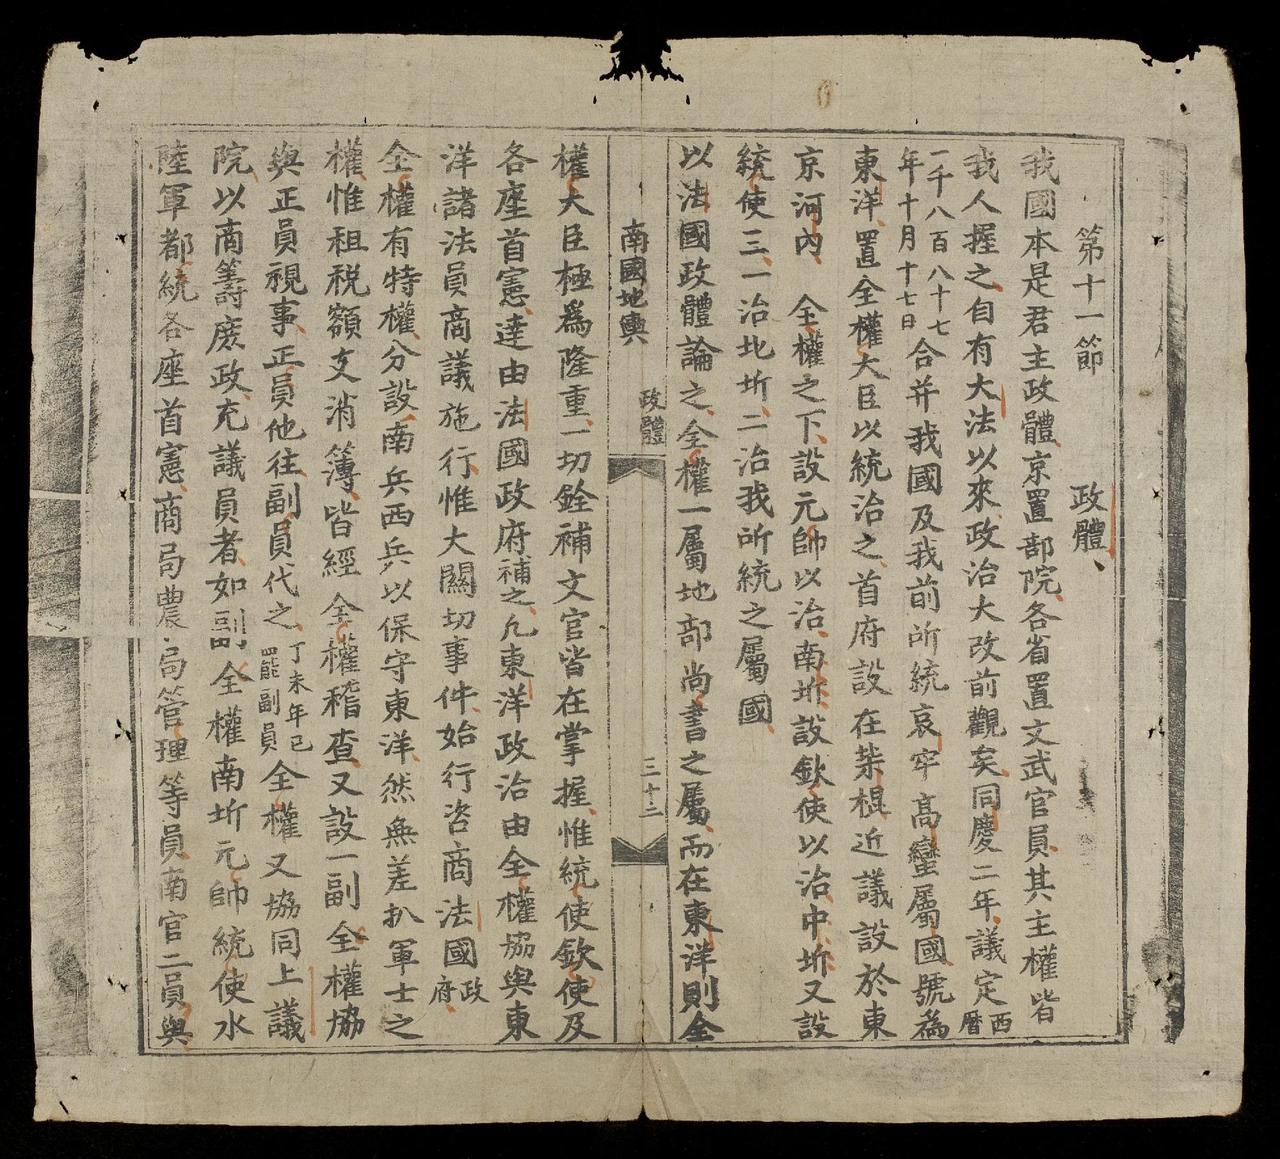 第十一節 政體、
我國本是君主政體、京置部院、各省置文武官員、其主權皆
我人握之、自有大法以來、政治大改前觀矣、同慶二年、議定西曆
一千八百八十七年十月十七日合并我國及我前所統哀牢高蠻屬國、號為
東洋、置全權大臣以統治之、首府設在柴棍、近議設於東
京河內、全權之下、設元帥以治南圻、設欽使以治中圻、又設
統使三、一治北圻、二治我所統之屬國、
以法國政體論之、全權一屬地部尚書之屬、而在東洋則全
南國地輿 政體 三十二
權大臣極為隆重、一切銓補文官皆在掌握、惟統使欽使及
各座首憲、達由法國政府補之、凡東洋政治由全權協與東
洋諸法員商議施行、惟大關切事件、始行咨商法國政府、
全權有特權、分設南兵西兵以保守東洋、然無差扒軍士之
權、惟租稅額支消簿、皆經 全權稽查、又設一副全權協
與正員視事、正員他往、副員代之、丁未年已罷副員全權又協同上議
院、以商籌庶政、充議員者、如副全權南圻元帥統使水
陸軍都統各座首憲、商局農局管理等員、南官二員、與